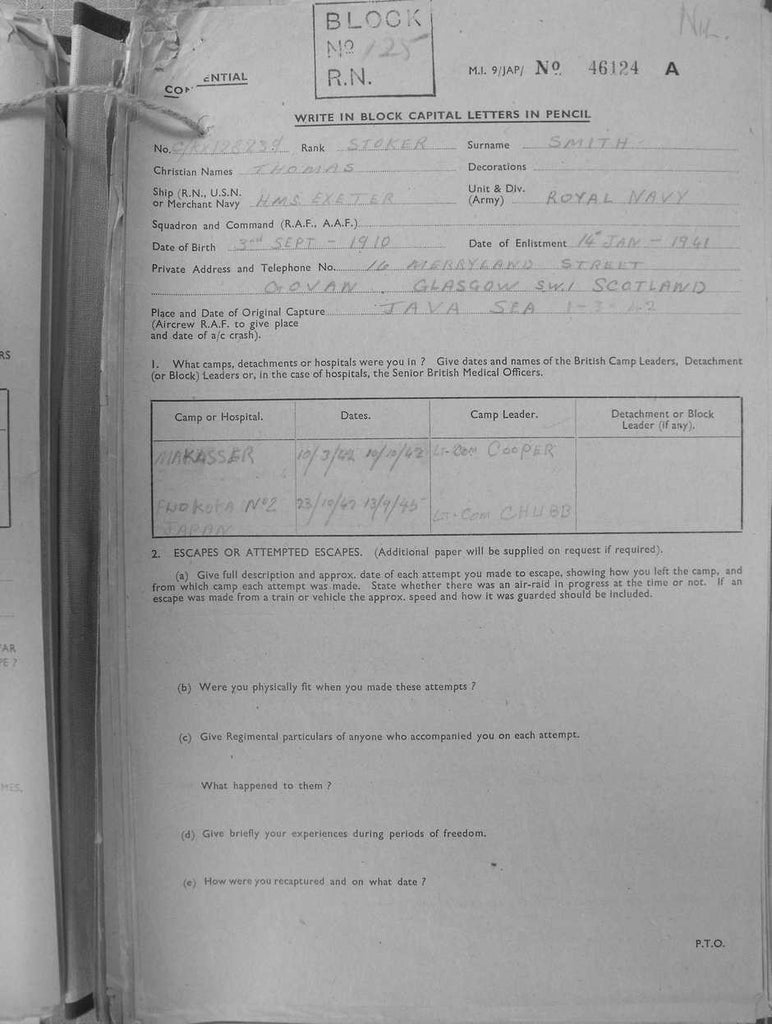 BLOCK
Nº 125
R.N.
NIL.
CONFIDENTIAL
M.I. 9/JAP/ Nº 46124 A
WRITE IN BLOCK CAPITAL LETTERS IN PENCIL
No. Rank STOKER Surname SMITH
Christian Names THOMAS Decorations
Ship (R.N., U.S.N. or Merchant Navy HMS EXETER Unit & Div. (Army) ROYAL NAVY
Squadron and Command (R.A.F., A.A.F.)
Date of Birth 3rd SEPT - 1910 Date of Enlistment 14th JAN - 1941
Private Address and Telephone No. 16 MERRYLAND STREET
GOVAN. GLASGOW SW.1 SCOTLAND
Place and Date of Original Capture JAVA SEA 1-3-42
(Aircrew R.A.F. to give place
and date of a/c crash).
1. What camps, detachments or hospitals were you in ? Give dates and names of the British Camp Leaders, Detachment
(or Block) Leaders or, in the case of hospitals, the Senior British Medical Officers.
Camp or Hospital. Dates. Camp Leader. Detachment or Block Leader (if any).
MAKASSER 10/3/42 10/10/42 LT-COM COOPER
FUOKOKA Nº2 23/10/42 13/9/45 LT-COM CHUBB
JAPAN
2. ESCAPES OR ATTEMPTED ESCAPES. (Additional paper will be supplied on request if required).
(a) Give full description and approx. date of each attempt you made to escape, showing how you left the camp, and
from which camp each attempt was made. State whether there was an air-raid in progress at the time or not. If an
escape was made from a train or vehicle the approx. speed and how it was guarded should be included.
(b) Were you physically fit when you made these attempts ?
(c) Give Regimental particulars of anyone who accompanied you on each attempt.
What happened to them ?
(d) Give briefly your experiences during periods of freedom.
(e) How were you recaptured and on what date ?
P.T.O.